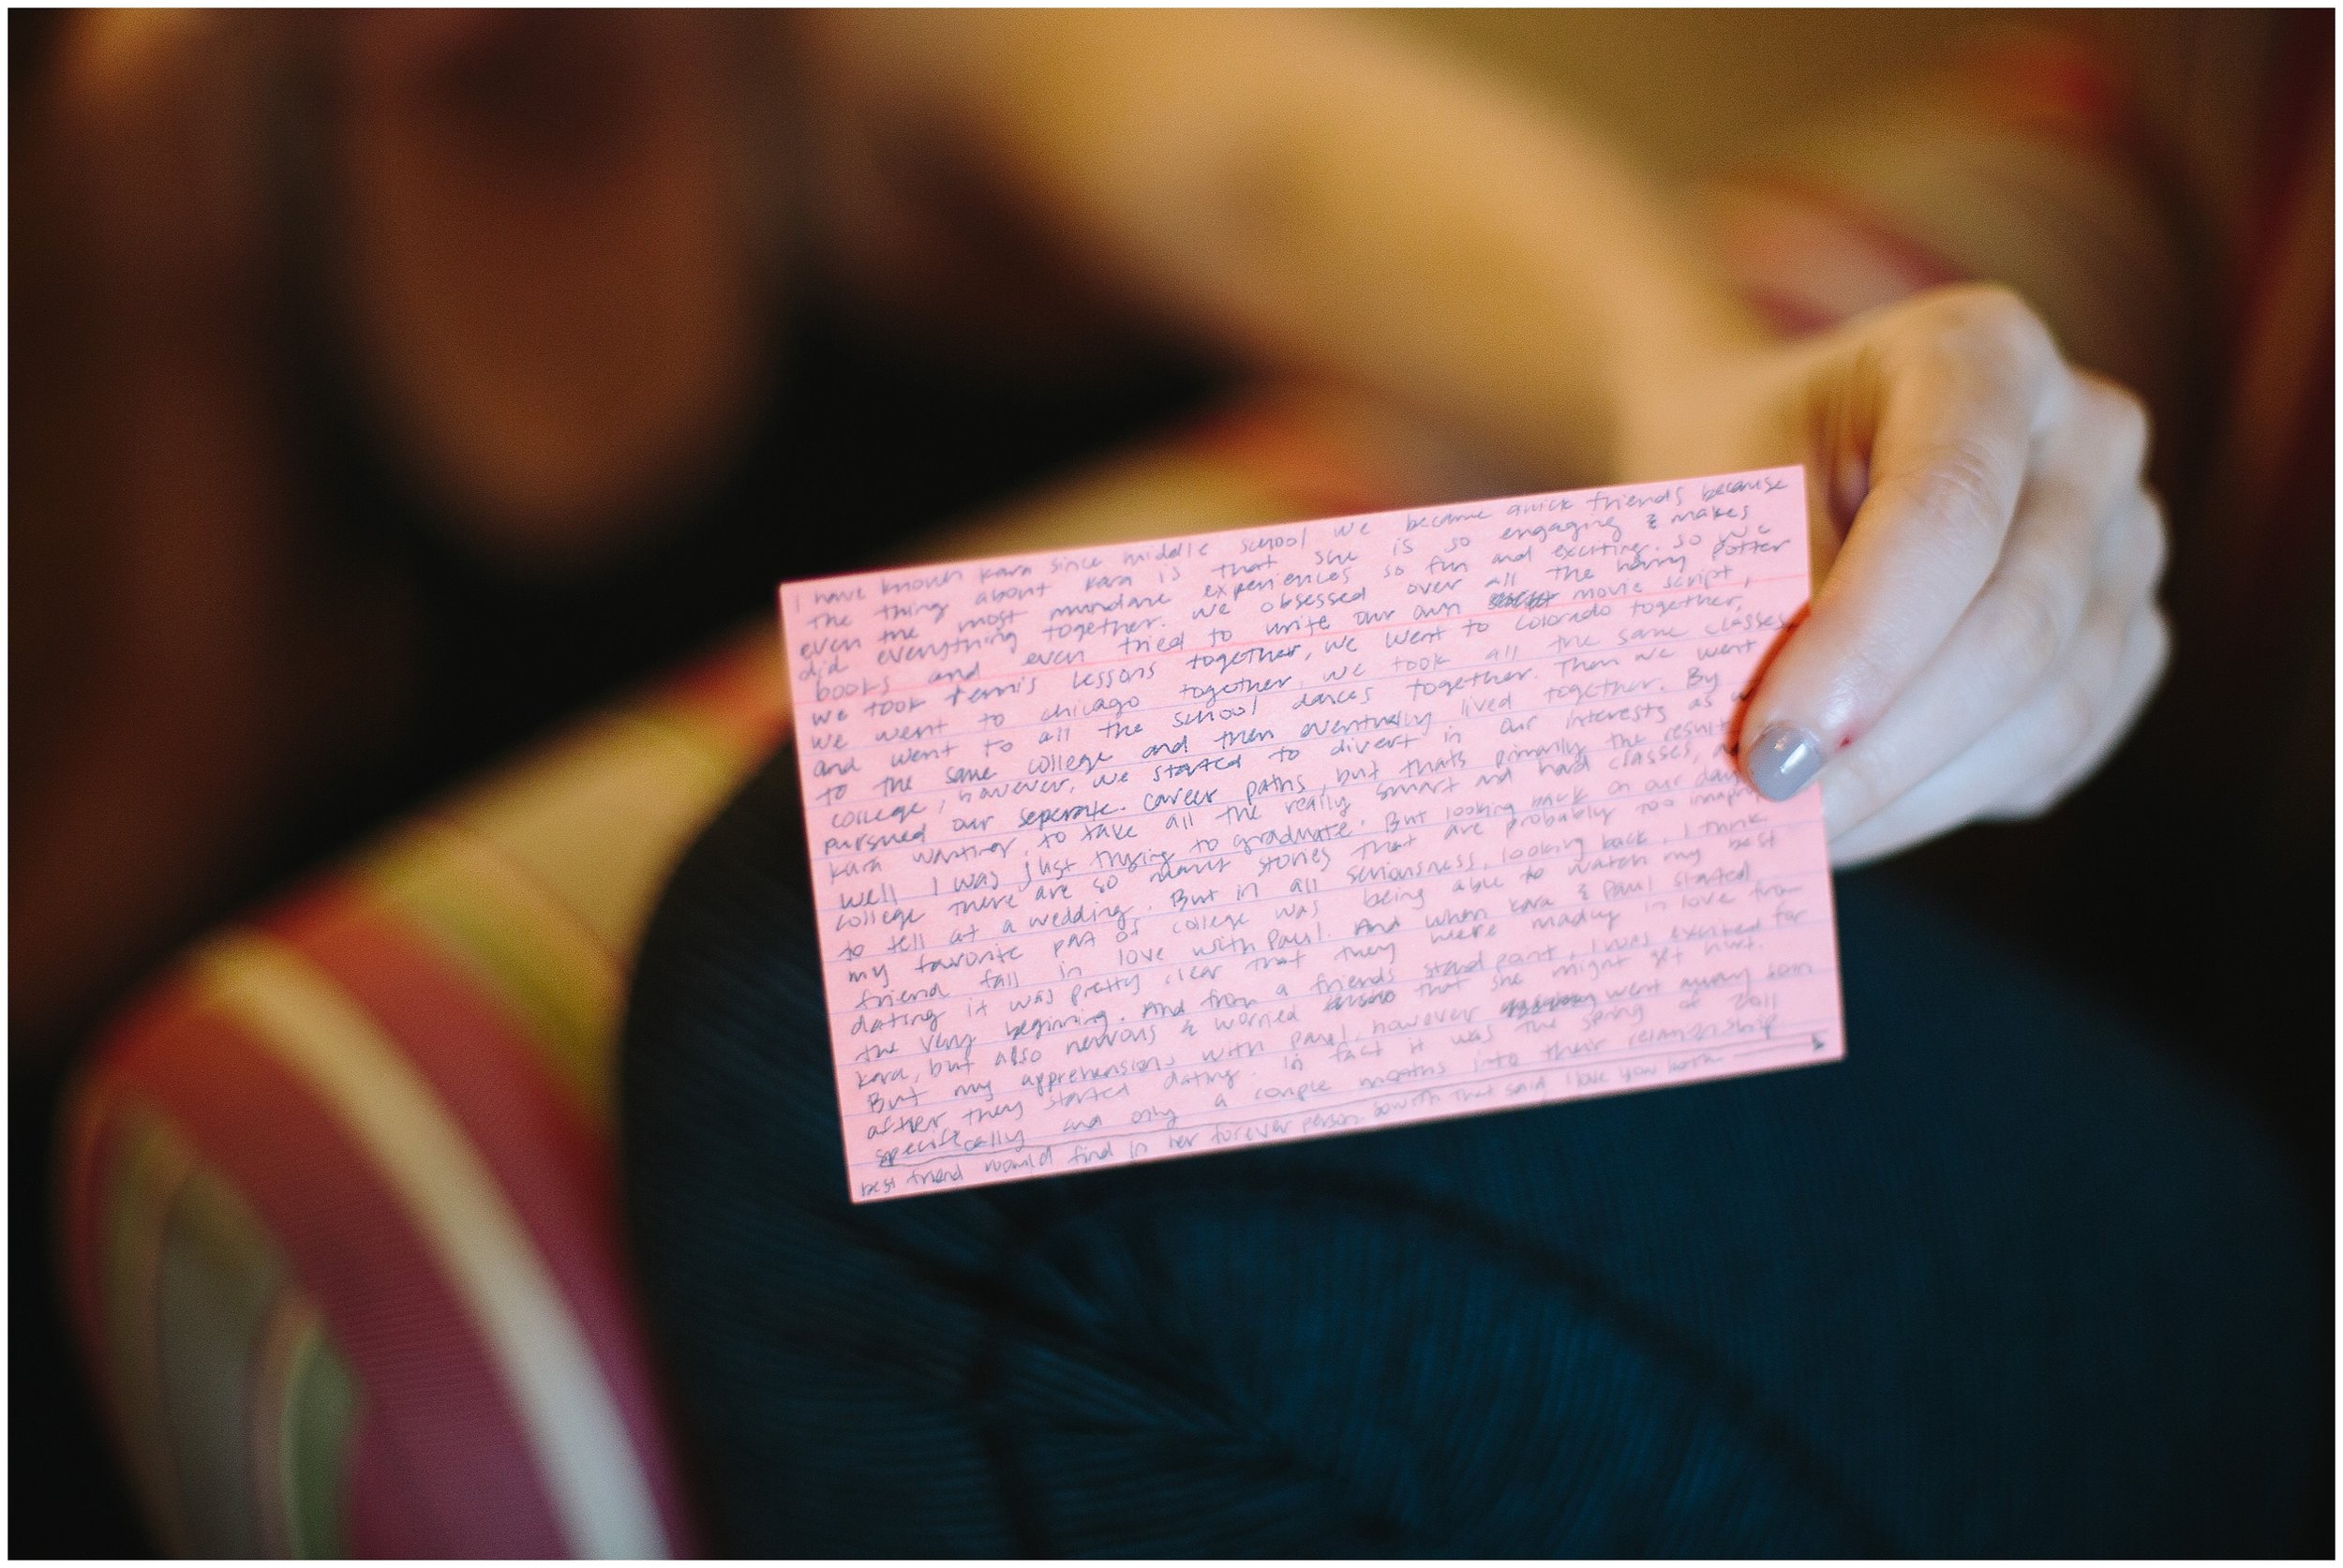 I have known Kara since middle school we became quick friends because
The thing about Kara is that she is so engaging & makes
even the most mundane experiences so fun and exciting. So we
did everything together. We obsessed over all the harry potter
books and even tried to write our own movie script,
we took tennis lessons together, we went to Colorado together,
we went to chicago together, we took all the same classes
and went to all the school dances together. Then we went
to the same college and then eventually lived together. By
college, however, we started to divert in our interests as we
pursued our seperate career paths, but thats primarily the result
Kara wanting to take all the really smart and hard classes,
well I was just trying to graduate. But looking back on our day
college there are so many stories that are probably too
to tell at a wedding. But in all seriousness, looking back, I think
my favorite part of college was being able to watch my best
friend fall in love with Paul. And when Kara & Paul started
dating it was pretty clear that they were madly in love from
the very beginning. And from a friends stand point, I was excited for
Kara, but also nervous & worried that she might get hurt.
But my apprehensions with Paul, however went away soon
after they started dating. In fact it was the spring of 2011
specifically and only a couple months into their relationship
best friend would find in her forever person. So with that said, I love you both